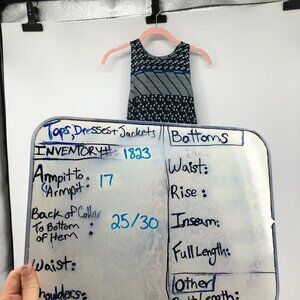 Tops, Dresses + Jackets
INVENTORY#: 1823
Armpit to
Armpit: 17
Back of Collar
To Bottom
of Hem: 25/30
Waist:
Shoulders:
Bottoms
Waist:
Rise:
Inseam:
Full Length:
Other
Length: